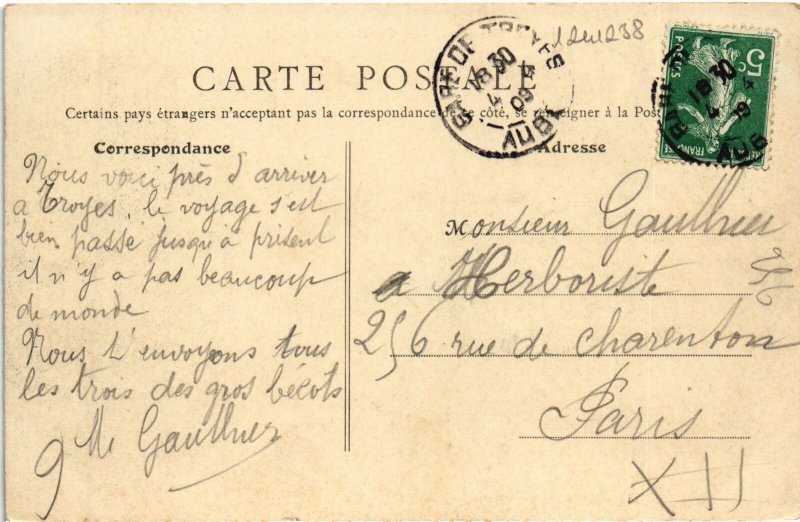 12en238
CARTE POSTALE
Certains pays étrangers n'acceptant pas la correspondance de ce côté, se renseigner à la Post
Correspondance
Nous voici près d'arriver
a Troyes, le voyage s'est
bien passé jusqu'a présent
il n'y a pas beaucoup
de monde
Nous t'envoyons tous
les trois des gros bécots
Gauthier
Adresse
Monsieur Gauthier
Herboriste
256 rue de charenton
Paris
XII
GARE DE TROYES
18 30
4
09
AUBE
5c
POSTES
18 30
4
AUBE